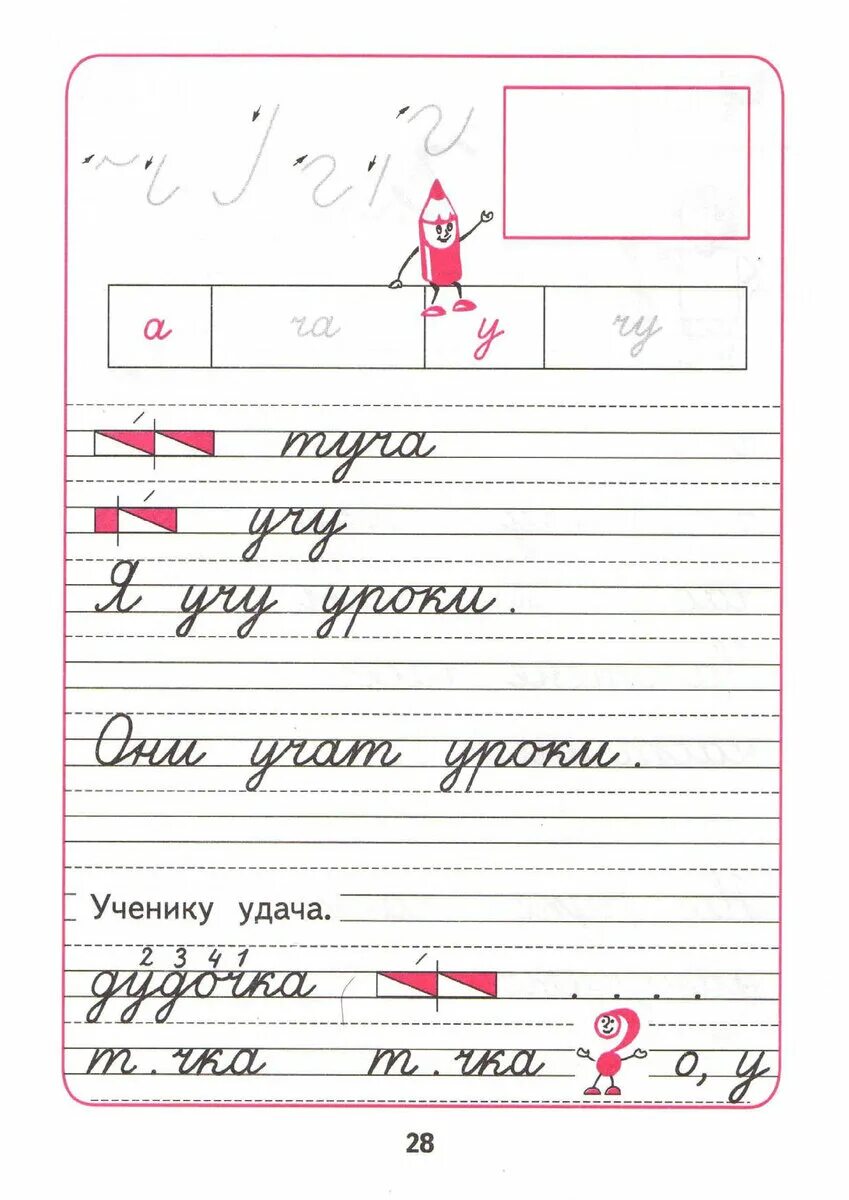 а ча у чу
туча
учу
Я учу уроки.
Они учат уроки.
Ученику удача.
2 3 4 1
дудочка . . . .
т.чка т.чка ? о, у
28